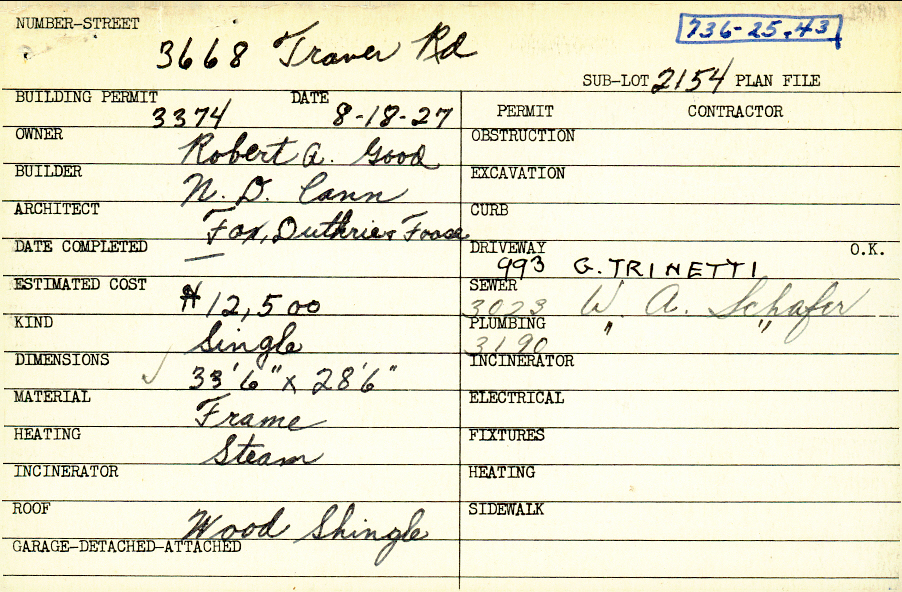 NUMBER-STREET
3668 Traver Rd
736-25-43
SUB-LOT 2154 PLAN FILE
BUILDING PERMIT 3374 DATE 8-18-27
OWNER Robert A. Good
BUILDER N. D. Cann
ARCHITECT Fox, Duthrie & Foose
DATE COMPLETED —
ESTIMATED COST $12,500
KIND Single
DIMENSIONS 33'6" x 28'6"
MATERIAL Frame
HEATING Steam
INCINERATOR
ROOF Wood Shingle
GARAGE-DETACHED-ATTACHED
PERMIT CONTRACTOR
OBSTRUCTION
EXCAVATION
CURB
DRIVEWAY 993 G. TRINETTI O.K.
SEWER 3023 W. A. Schafer
PLUMBING 3190 " "
INCINERATOR
ELECTRICAL
FIXTURES
HEATING
SIDEWALK